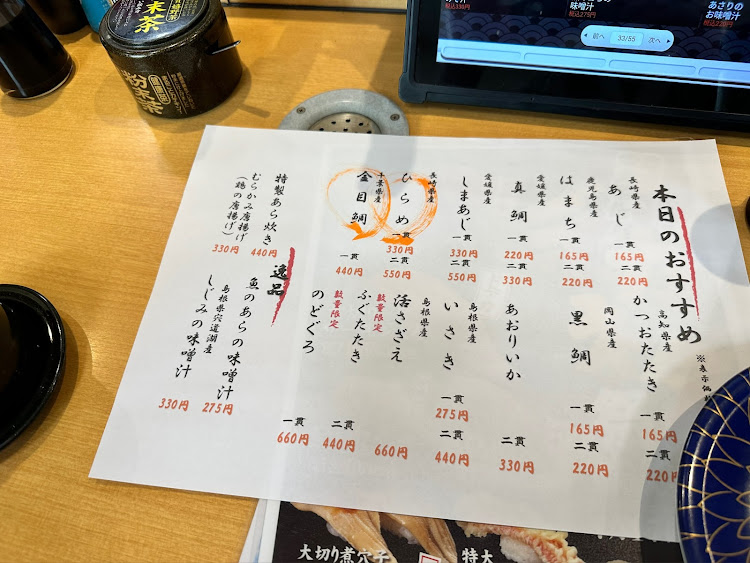 味噌汁
税込275円
あさりの
お味噌汁
税込220円
前へ 33/55 次へ
末茶
粉末茶
本日のおすすめ
長崎県産
あじ
一貫
165円
二貫
220円
鹿児島県産
はまち
一貫
165円
二貫
220円
愛媛県産
真鯛
一貫
220円
二貫
330円
愛媛県産
しまあじ
一貫
330円
二貫
550円
長崎県産
ひらめ
一貫
330円
二貫
550円
千葉県産
金目鯛
一貫
440円
高知県産
かつおたたき
一貫
165円
二貫
220円
岡山県産
黒鯛
一貫
165円
二貫
220円
あおりいか
二貫
330円
島根県産
いさき
一貫
275円
二貫
440円
活さざえ
660円
数量限定
ふぐたたき
二貫
440円
数量限定
のどぐろ
一貫
660円
逸品
特製あら炊き
440円
むらかみ唐揚げ
（鶏の唐揚げ）
330円
魚のあらの味噌汁
275円
島根県宍道湖産
しじみの味噌汁
330円
大切り煮穴子
特大